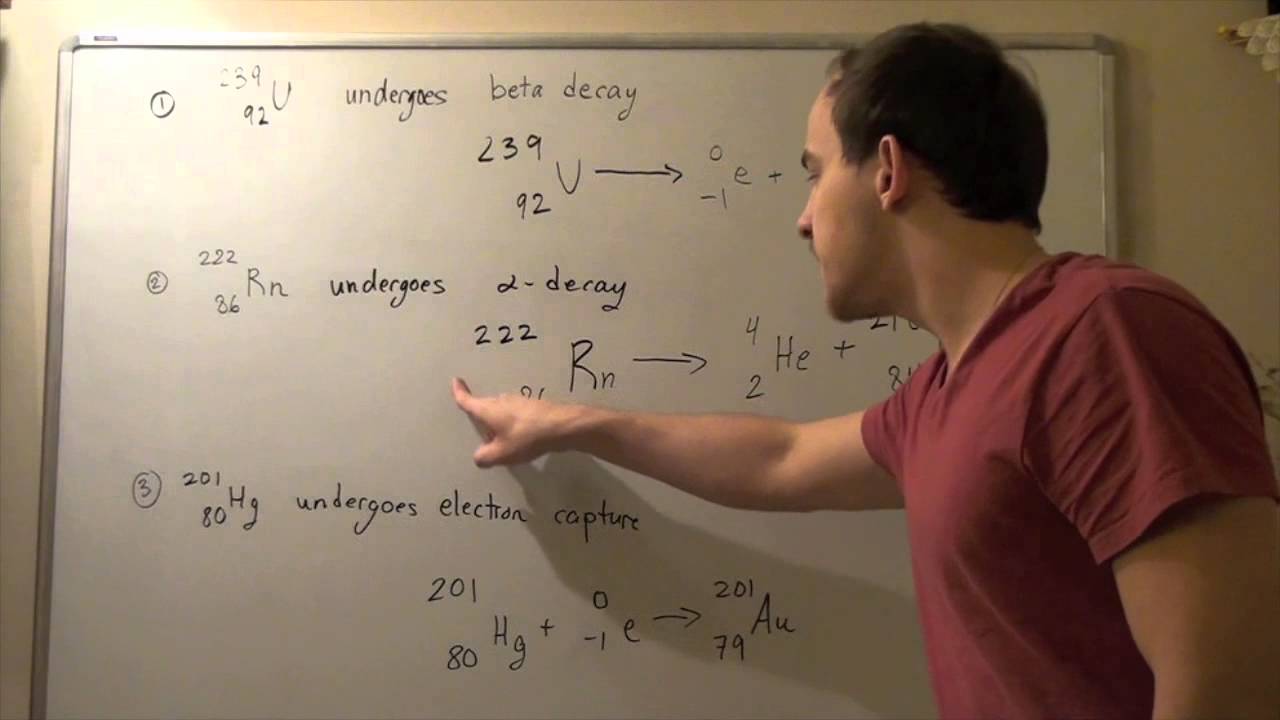 ① 239 92 U undergoes beta decay
239 92 U → 0 -1 e +
② 222 86 Rn undergoes α-decay
222 Rn → 4 2 He +
③ 201 80 Hg undergoes electron capture
201 80 Hg + 0 -1 e → 201 79 Au